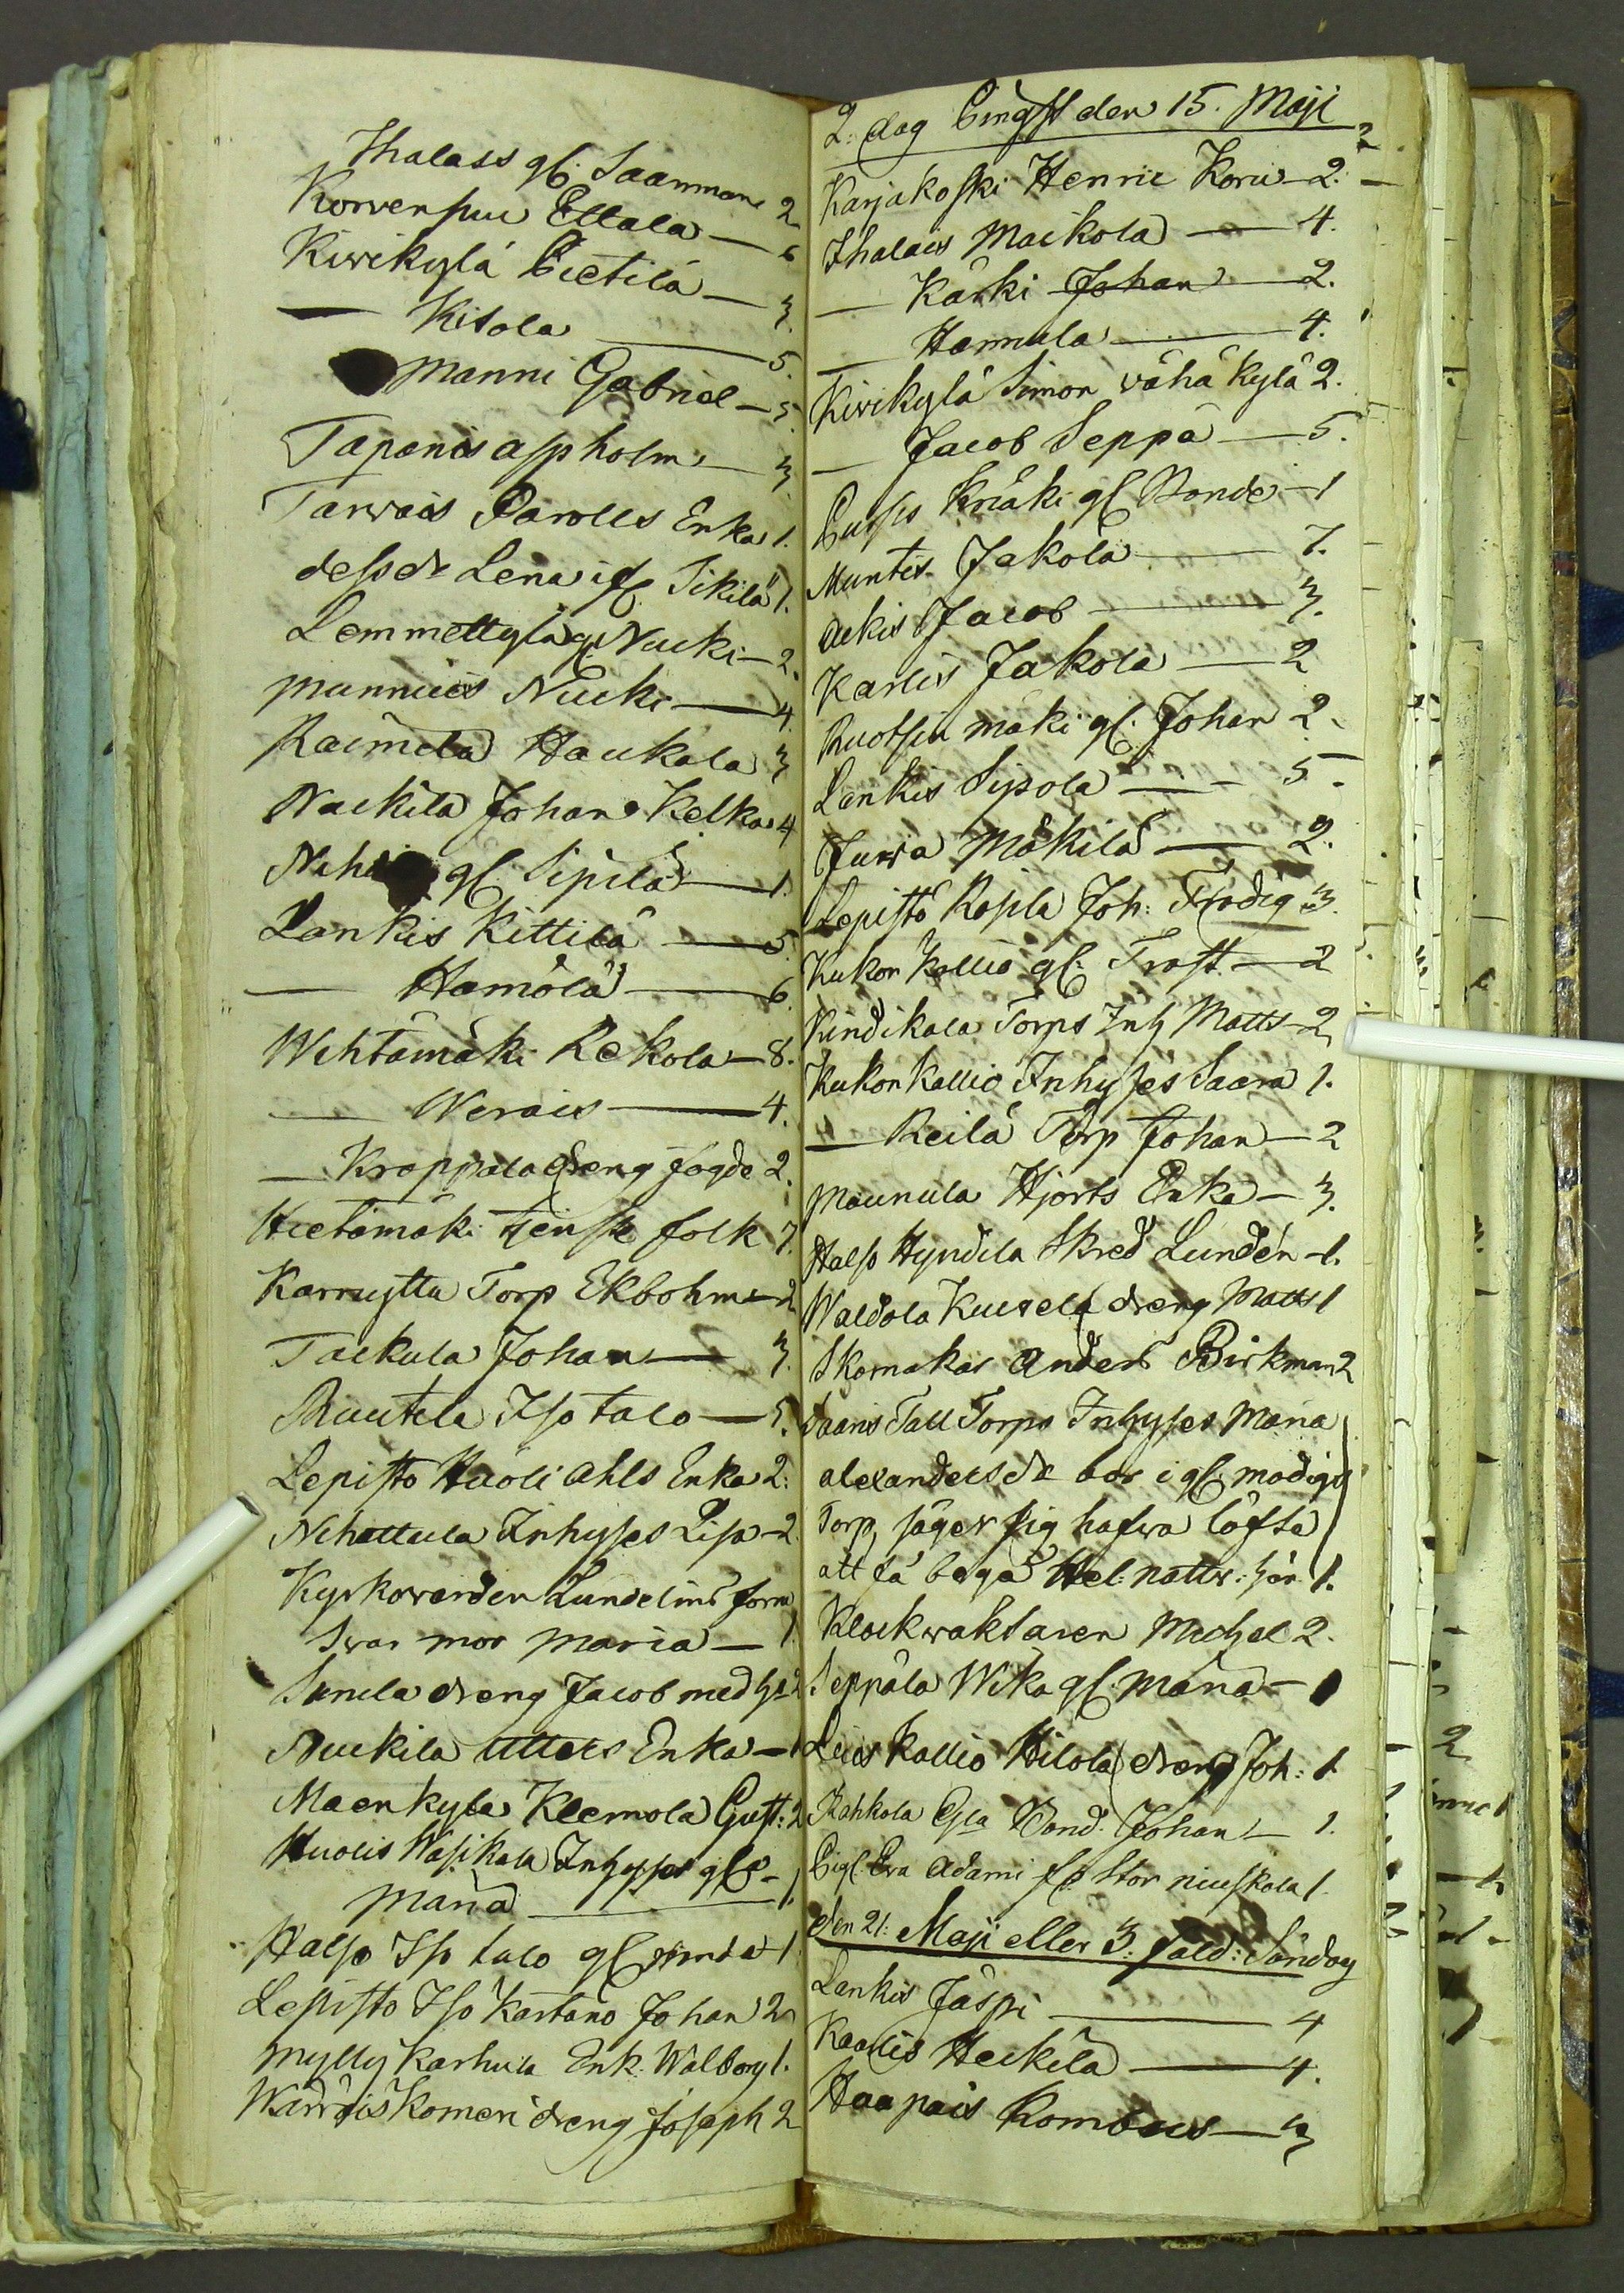 Ihalass gl. Saanmane 2
Korvenpuu Ellala — 6
Kivikylä Pietilä — 3.
— Kitola — 5.
Manni Gabriel — 5.
Taponis Aspholm — 3
Tarvais Parolls Enka 1.
dess dr Lena i gl. Sikilä 1.
Lemmettylä gl. Nucki — 2.
Munnuis Nucki — 4.
Raimela Haukala 3
Nackila Johan Kelka 4
gl. Sipilä — 1.
Lankis Kittilä — 5.
— Hamölä — 6.
Wihtamäki Rekola — 8.
— Nerais — 4.
— Kroppala dreng fogde 2.
Hietamäki tjenste folk 7.
Karruytta Torp Ekbohm — 2
Tackula Johan — 3.
Ruutela Iso talo — 5.
Lepistö Huoli Ahls Enka 2.
Nihattula Inhyses Lisa — 2.
Kyrkovärden Lundelins form
Svär mor Maria — 1.
Sunila dreng Jacob med h: 2
Nuckila Ullers Enka — 1
Maenkyla Klemola Gust: 2
Huolis Wasikala Inhyses gl
Maria — 1.
Halso Iso talo gl 1.
Lepisto Iso Kartano Johan 2
Mylly Karhula Enk. Walborg 1.
Wärrois Komeri dreng Joseph 2
2: dag Pingst den 15. Maji
2
Karjakoski Henric Koru — 2. —
Ihalais Maikola — 4.
— Kärki Johan — 2.
— Hannula — 4.
Kivikylä Simon vähä kylä 2.
— Jacob Seppä — 5.
Kriäki gl. Bonde — 1
Muntis Jakola — 7.
Aukis Jacob — 3.
Karlis Jakola — 2
Ruotsin mäki gl. Johan 2.
Lankis Sipola — 5.
Juva Mäkilä — 2.
Lepistö Rosla Joh: Frodig 3.
Kukon kallio gl. Trast — 2
Kindikala Torps Inh Matts 2
Kukon Kallio Inhyses Saara 1.
— Reilä Torp Johan — 2
Maunula Hjorts Enka — 3.
Halso Hyndila Skred Lundén — 1.
Waldola Kusela dreng Matts 1
Skomakar Anders Birkman 2
Saaris Tall Torps Inhyses Maria
Alexanders dr bor i gl. modigs
Torp, säger sig hafva löfte
att få begå Hel. nattv. här 1.
Klockvaktaren Michel 2.
Seppälä Wika gl. Maria — 1
Lias Kallio Hilola dreng Joh: 1.
Kahkola gla Bond. Johan — 1.
Pig. Eva Adami fr Stor niuskola 1.
den 21: Maji eller 3. Söndag
Lankis Jäspi — 4
Kaarlis Heikilä — 4.
Haapais Rombus — 3